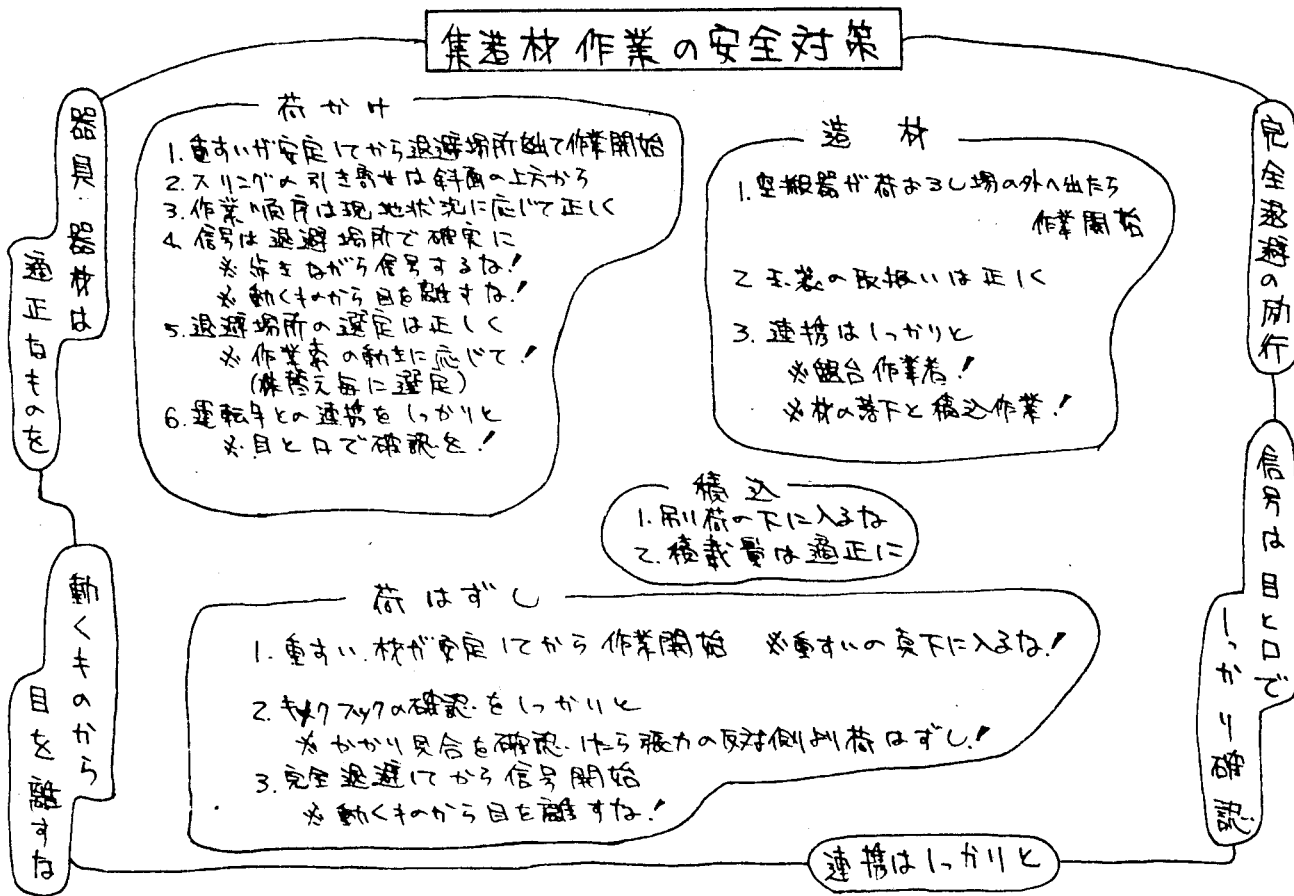 集造材作業の安全対策
器具器材は
適正なものを
動くものから
目を離すな
荷かけ
1. 重すいが安定してから退避場所出て作業開始
2. スリングの引き寄せは斜面の上方から
3. 作業順序は現地状況に応じて正しく
4. 信号は退避場所で確実に
※歩きながら信号するな!
※動くものから目を離すな!
5. 退避場所の選定は正しく
※作業索の動きに応じて!
(株替え毎に選定)
6. 運転手との連携をしっかりと
※目と口で確認を!
造材
1. 空搬器が荷おろし場の外へ出たら
作業開始
2 玉装の取扱いは正しく
3. 連携はしっかりと
※盤台作業者!
※材の落下と積込作業!
積込
1. 吊り荷の下に入るな
2. 積載量は適正に
荷はずし
1. 重すい、材が安定してから作業開始 ※重すいの真下に入るな!
2. フックの確認をしっかりと
※かかり具合を確認したら張力の反対側より荷はずし!
3. 完全退避してから信号開始
※動くものから目を離すな!
完全退避の励行
信号は目と口で
しっかり確認
連携はしっかりと